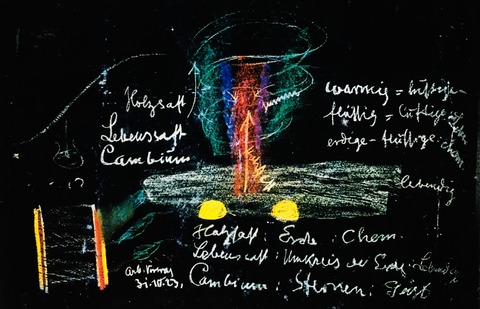 Holzsaft
Lebenssaft
Cambium
flüssig = luftige
erdige-flüssige
lebendig
Holzsaft: Erde: Chem.
Lebenssaft: Umkreis der Erde:
Cambium: Sternen: Geist
31.10.23,